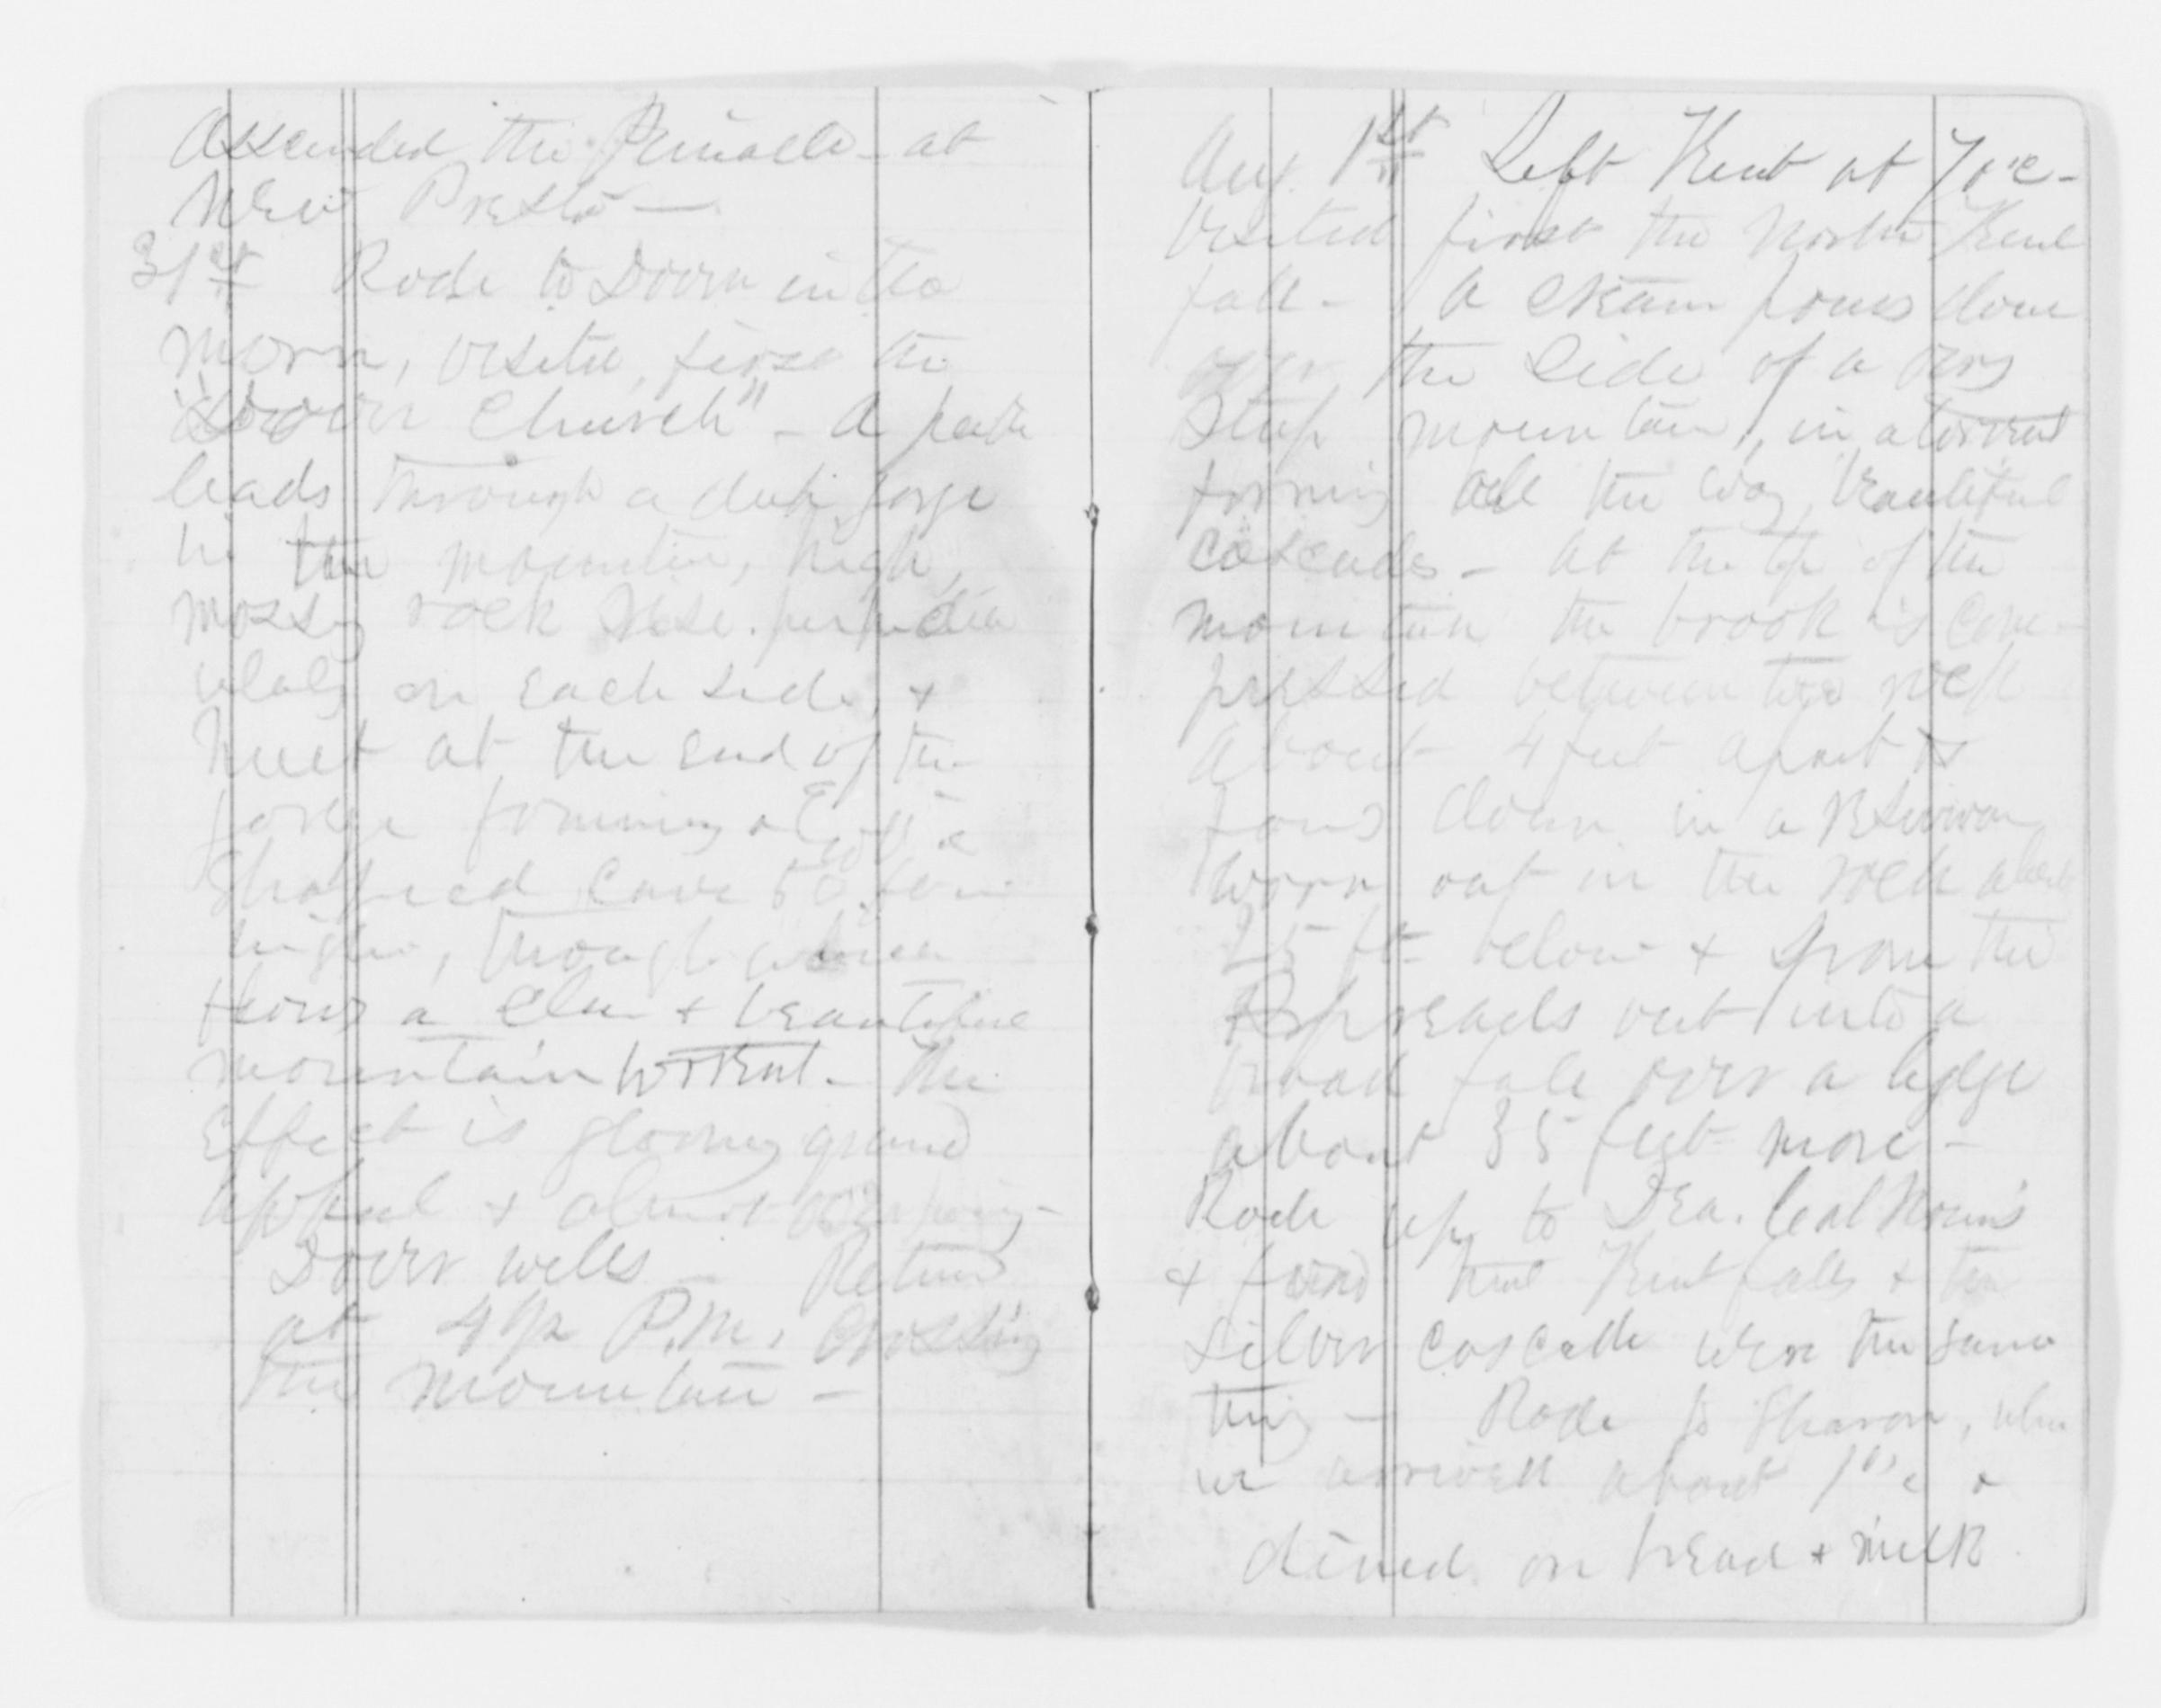 Ascended the Pinnacle at
New Preston —
31st Rode to Dover in the
morn, visited first the
"Dover Church" - A path
leads through a deep gorge
in the mountain, high,
mossy rock rise perpendic
ularly on each side, &
meet at the end of the
gorge forming a Gothic
shaped cave 50 feet
high, through which
flows a clear & beautiful
mountain torrent. The
effect is gloomy grand
& almost
Dover wells — Return
at 4 1/2 P.M. crossing
the mountain —
Aug. 1st Left Kent at 7 o'c -
Visited first the North Kent
fall - A stream pours down
over the side of a very
steep mountain, in a torrent
forming all the way beautiful
cascades - At the top of the
mountain the brook is com-
pressed between two rock
about 4 feet apart &
pours down in a reservoir
worn out in the rock about
25 ft below & from the
spreads out into a
broad fall over a ledge
about 35 feet more -
Rode up to Dea.
& found that Kent falls & the
Silver Cascade were the same
thing — Rode to Sharon, where
we arrived about 1 o'c &
dined on bread & milk